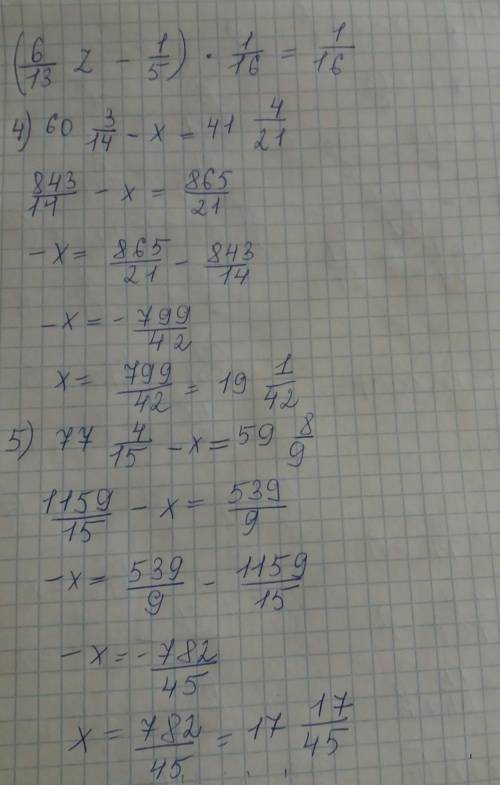 (6/13 z - 1/5) · 1/16 = 1/16
4) 60 3/14 - x = 41 4/21
843/14 - x = 865/21
-x = 865/21 - 843/14
-x = - 799/42
x = 799/42 = 19 1/42
5) 77 4/15 - x = 59 8/9
1159/15 - x = 539/9
-x = 539/9 - 1159/15
-x = - 782/45
x = 782/45 = 17 17/45